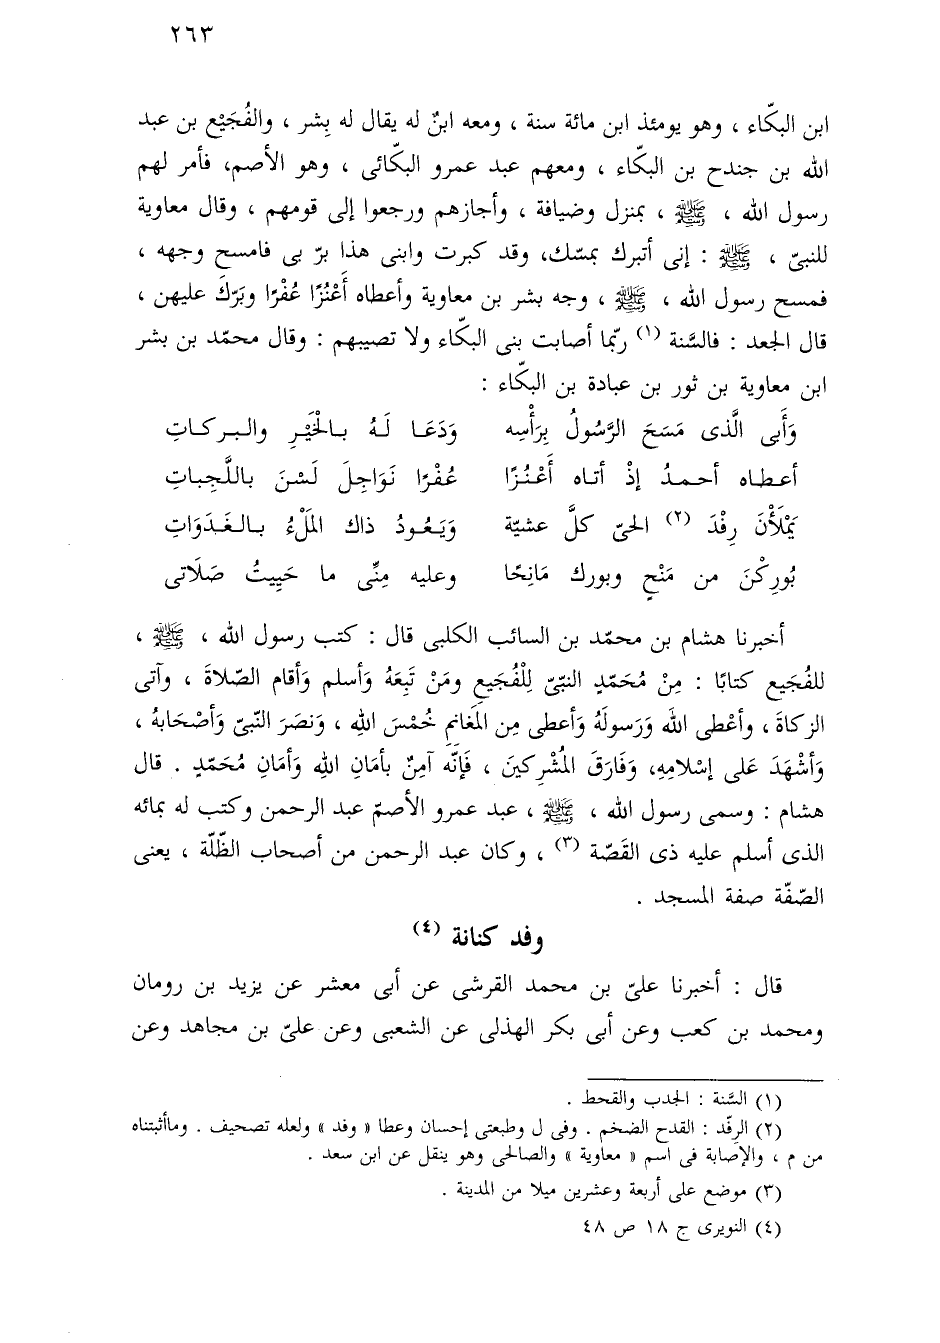 ٢٦٣
ابن البكّاء ، وهو يومئذ ابن مائة سنة ، ومعه ابنٌ له يقال له بِشر ، والفُجَيْع بن عبد
الله بن جندح بن البكّاء ، ومعهم عبد عمرو البكّائى ، وهو الأصم، فأمر لهم
رسول الله ، ﷺ ، بمنزل وضيافة ، وأجازهم ورجعوا إلى قومهم ، وقال معاوية
للنبىّ ، ﷺ : إنى أتبرك بمسّك، وقد كبرت وابنى هذا برّ بى فامسح وجهه ،
فمسح رسول الله ، ﷺ ، وجه بشر بن معاوية وأعطاه أَعْنُزًا عُفْرًا وبَرّكَ عليهن ،
قال الجعد : فالسَّنة (١) ربّما أصابت بنى البكّاء ولا تصيبهم : وقال محمّد بن بشر
ابن معاوية بن ثور بن عبادة بن البكّاء :
وَأَبى الَّذى مَسَحَ الرَّسُولُ بِرَأْسِه وَدَعَـا لَـهُ بـالْخَيْرِ والـبـركـاتِ
أعـطـاه أحـمـدُ إذْ أتـاه أَعْـنُـزًا عُـفْرًا نَـوَاجِلَ لَسْـنَ بـاللَّجِبـاتِ
يَمْلَأْنَ رِفْدَ (٢) الحىّ كلَّ عشيّة وَيَـعُـودُ ذاك المَلْءُ بـالـغَـدَوَاتِ
بُورِكْنَ من مَنْحٍ وبورك مَانِحًا وعليه مِنِّى ما حَيِيتُ صَلَاتى
أخبرنا هشام بن محمّد بن السائب الكلبى قال : كتب رسول الله ، ﷺ ،
للفُجيع كتابًا : مِنْ مُحَمّدٍ النّبىّ لِلْفُجَيعِ ومَنْ تَبِعَهُ وَأسلم وَأقام الصّلاةَ ، وآتى
الزكاةَ ، وأعْطى اللهَ وَرَسولَهُ وَأعطى مِن المَغانِمِ خُمْسَ اللهِ ، وَنصَرَ النّبىّ وَأصْحَابهُ ،
وَأشْهَدَ عَلى إسْلامِهِ، وَفَارَقَ المُشْرِكِينَ ، فَإنّه آمِنٌ بأمَانِ اللهِ وَأمَانِ مُحَمّدٍ . قال
هشام : وسمى رسول الله ، ﷺ ، عبد عمرو الأصمّ عبد الرحمن وكتب له بمائه
الذى أسلم عليه ذى القَصّة (٣) ، وكان عبد الرحمن من أصحاب الظّلّة ، يعنى
الصّفّة صفة المسجد .
وفد كنانة (٤)
قال : أخبرنا علىّ بن محمد القرشى عن أبى معشر عن يزيد بن رومان
ومحمد بن كعب وعن أبى بكر الهذلى عن الشعبى وعن علىّ بن مجاهد وعن
(١) السَّنة : الجدب والقحط .
(٢) الرِفّد : القدح الضخم . وفى ل وطبعتى إحسان وعطا « وفد » ولعله تصحيف . وماأثبتناه
من م ، والإصابة فى اسم « معاوية » والصالحى وهو ينقل عن ابن سعد .
(٣) موضع على أربعة وعشرين ميلا من المدينة .
(٤) النويرى ج ١٨ ص ٤٨